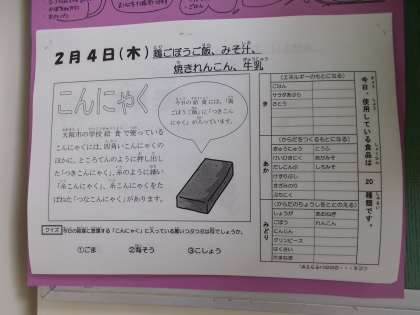 2月4日(木)鶏ごぼうご飯、みそ汁、
焼きれんこん、牛乳
こんにゃく
今日の給食には、「鶏
ごぼうご飯」に「つきこん
にゃく」が入っています。
大阪市の学校給食で使っている
こんにゃくには、四角いこんにゃくの
ほかに、ところてんのように押し出し
た「つきこんにゃく」、糸のように細い
「糸こんにゃく」、糸こんにゃくをた
ばねた「つなこんにゃく」があります。
クイズ 今日の給食に登場する「こんにゃく」に入っている黒いつぶつぶは何でしょうか。
①ごま ②海そう ③こしょう
今日、使用している食品は 20 種類です。
き
(エネルギーのもとになる)
ごはん
サラダあぶら
さとう
あか
(からだをつくるもとになる)
ぎゅうにゅう とうふ
けいひきにく あかみそ
だしこんぶ しろみそ
けずりぶし
きざみのり
ぶたにく
みどり
(からだのちょうしをととのえる)
しょうが あおねぎ
ごぼう れんこん
にんじん
グリンピース
はくさい
たまねぎ